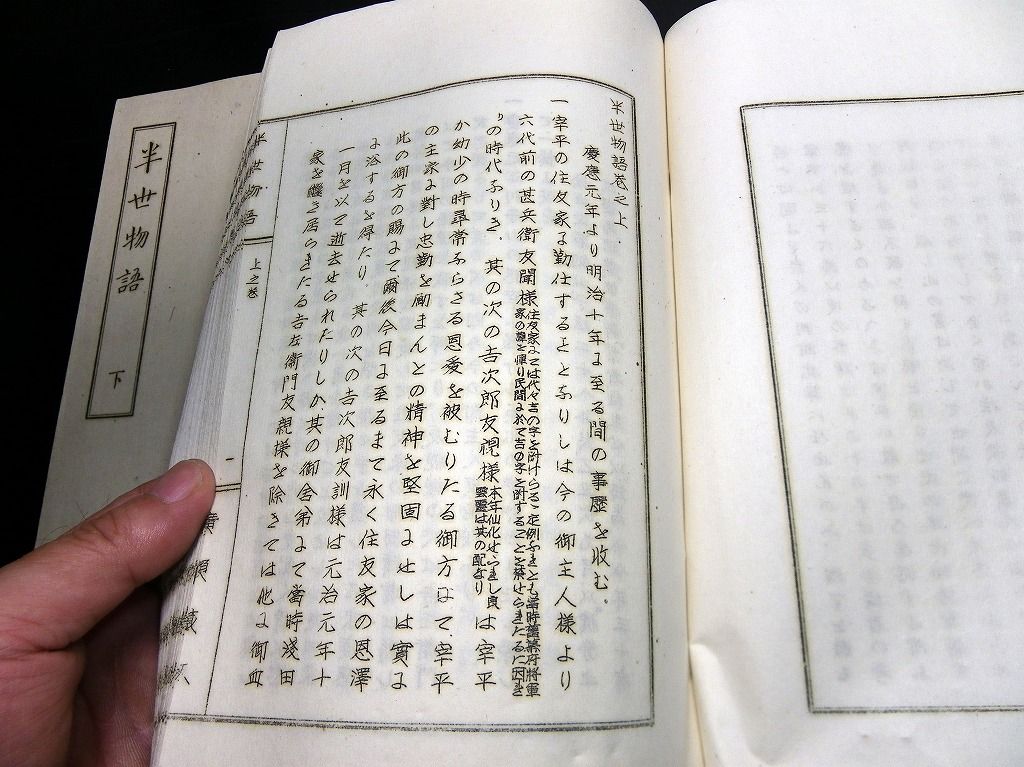 半世物語卷之上
慶應元年より明治十年に至る間の事歴を收む。
一宰平の住友家に勤仕することとなりしは今の御主人様より
六代前の甚兵衛友聞様住友家にては代々吉の字を附けらるゝ定例なれとも當時舊幕府將軍
家の諱を憚り民間に於て吉の字を附することを禁せられたるに因れ
りの時代なりき。其の次の吉次郎友視様本年仙化せられし良
靈靈は其の配なりは宰平
か幼少の時尋常ならさる恩愛を被むりたる御方にて、宰平
の主家に對し忠勤を勵まんとの精神を堅固にせしは實に
此の御方の賜にて爾後今日に至るまて永く住友家の恩澤
に浴するを得たり。其の次の吉次郎友訓様は元治元年十
一月を以て逝去せられたりしか其の御舍弟にて當時淺田
家を繼き居られたる吉左衛門友親様を除きては他に御血
半世物語
上之卷
一
半世物語
下